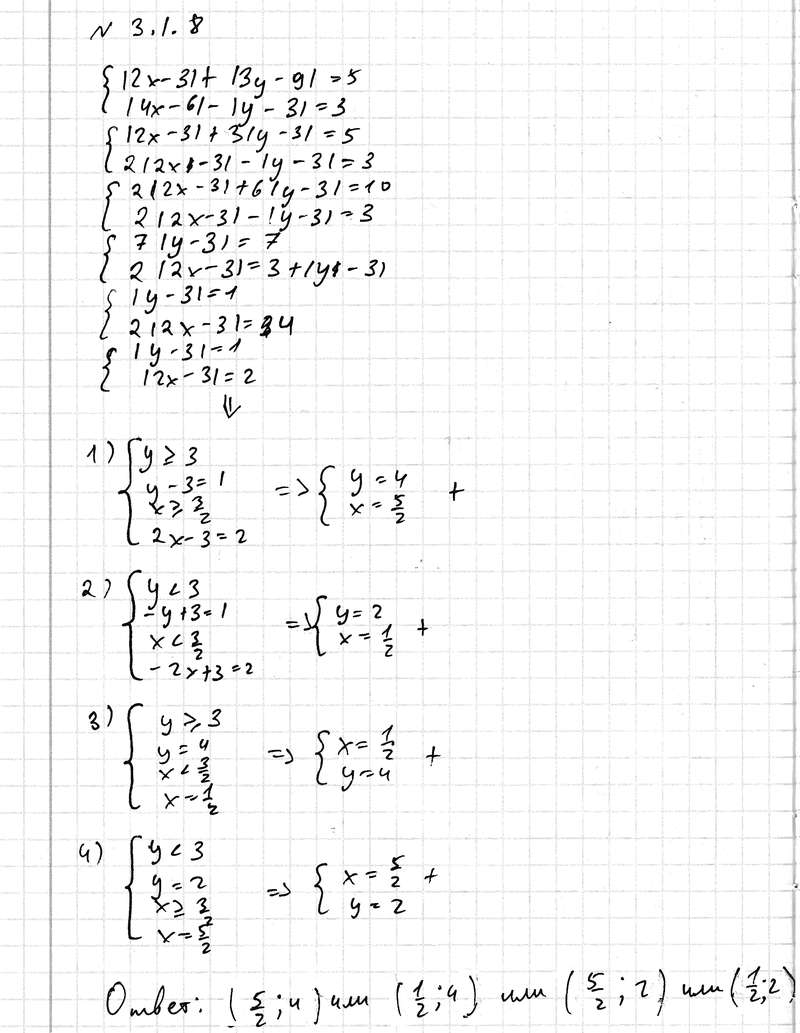 N 3.1.8
{ |2x-3| + |3y-9| = 5
|4x-6| - |y-3| = 3
{ |2x-3| + 3|y-3| = 5
2|2x-3| - |y-3| = 3
{ 2|2x-3| + 6|y-3| = 10
2|2x-3| - |y-3| = 3
{ 7|y-3| = 7
2|2x-3| = 3 + |y-3|
{ |y-3| = 1
2|2x-3| = 4
{ |y-3| = 1
|2x-3| = 2
⇓
1) { y ≥ 3
y-3 = 1
x ≥ 3/2
2x-3 = 2
=> { y = 4
x = 5/2
+
2) { y < 3
-y+3 = 1
x < 3/2
-2x+3 = 2
=> { y = 2
x = 1/2
+
3) { y ≥ 3
y = 4
x < 3/2
x = 1/2
=> { x = 1/2
y = 4
+
4) { y < 3
y = 2
x ≥ 3/2
x = 5/2
=> { x = 5/2
y = 2
+
Ответ: (5/2; 4) или (1/2; 4) или (5/2; 2) или (1/2; 2)